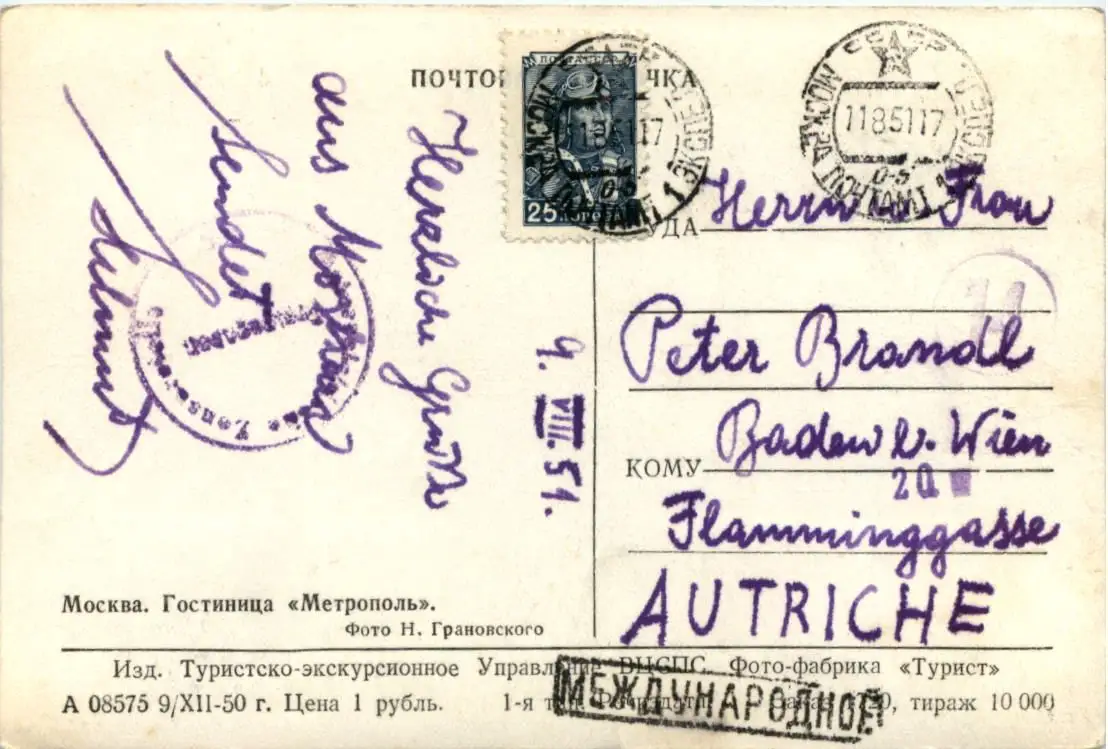 ПОЧТО ЧКА
25
МОСКВА
ПОЧТАМТ 1
11851.17
0-5
СССР
МОСКВА
ПОЧТАМТ 1
11851.17
0-5
Herzliche Grüße
aus Moskau
sendet
Helmut
9. VIII. 51.
УДА
Herrn u Frau
Peter Brandl
КОМУ
Baden b. Wien
20
Flamminggasse
AUTRICHE
Москва. Гостиница «Метрополь».
Фото Н. Грановского
Изд. Туристско-экскурсионное Управление ВЦСПС. Фото-фабрика «Турист»
А 08575 9/XII-50 г. Цена 1 рубль. 1-я тираж 10 000
МЕЖДУНАРОДНОЕ